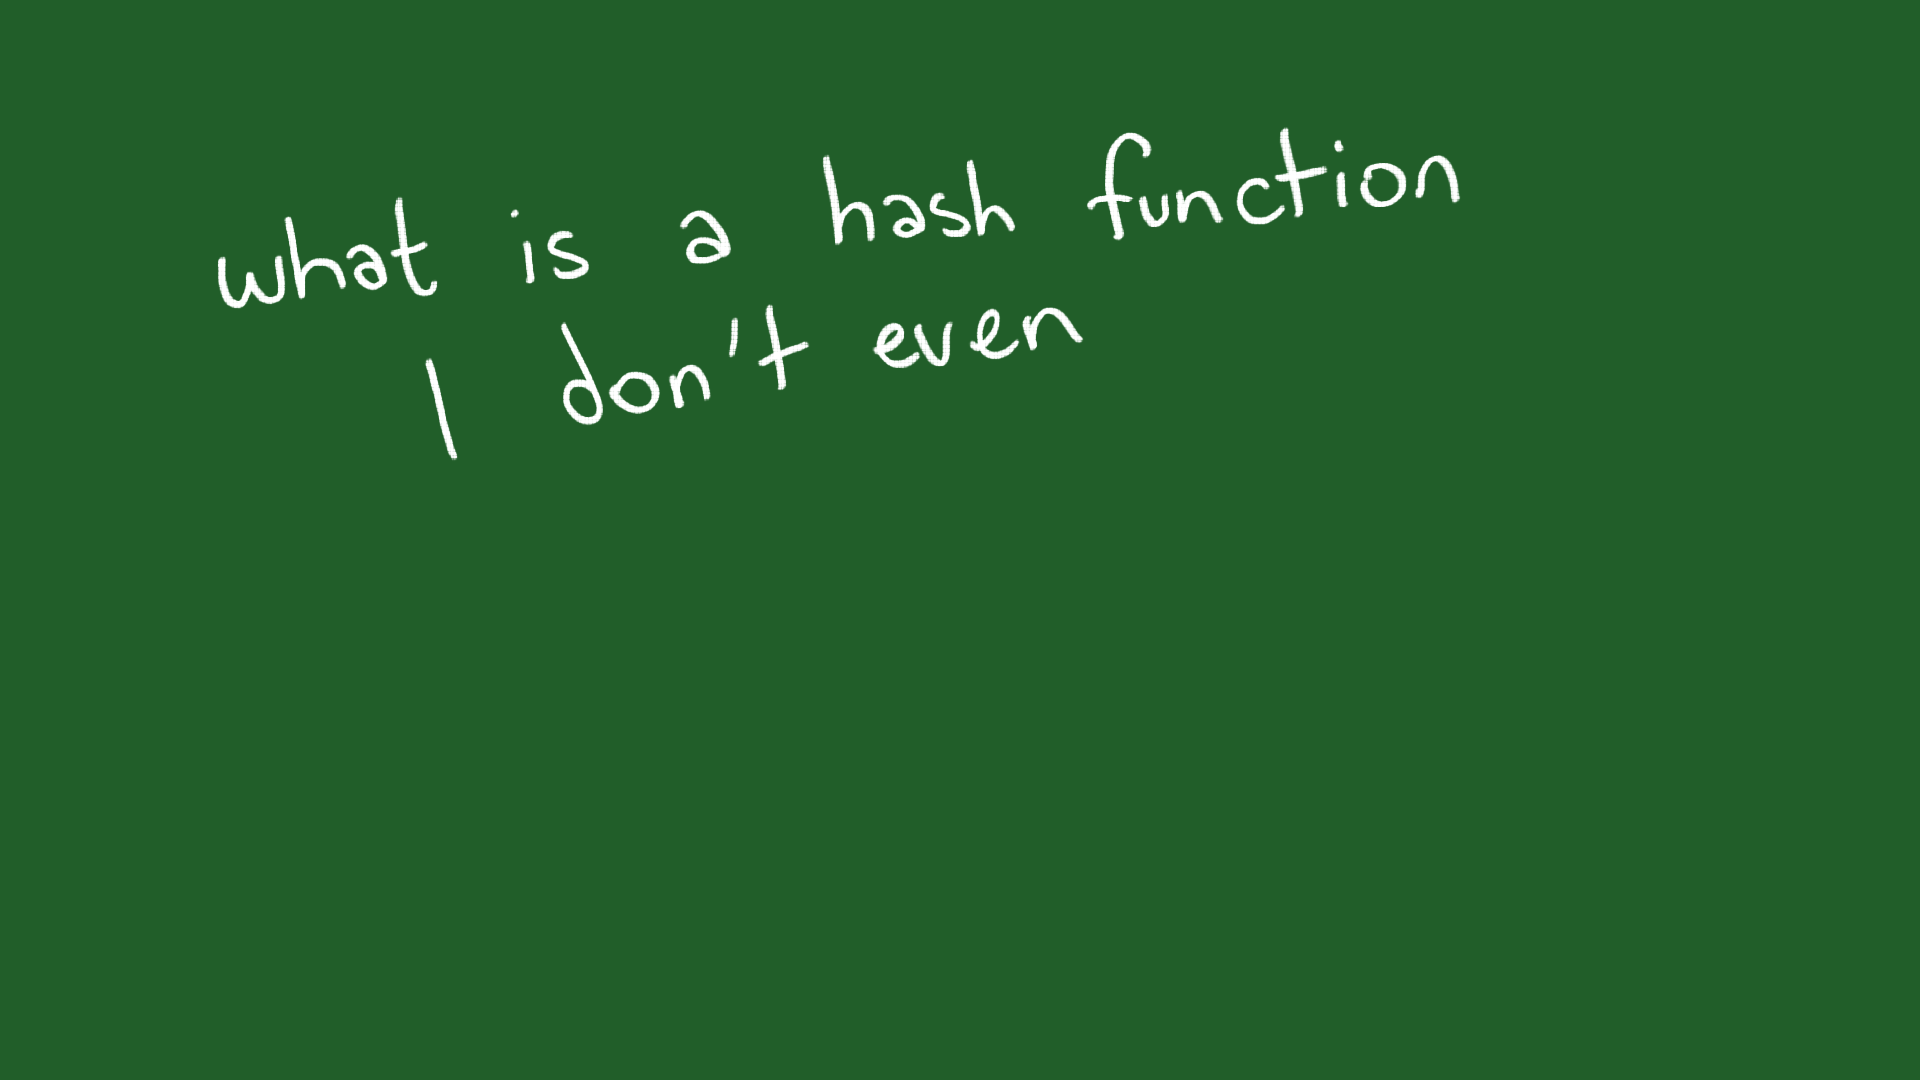 what is a hash function
I don't even